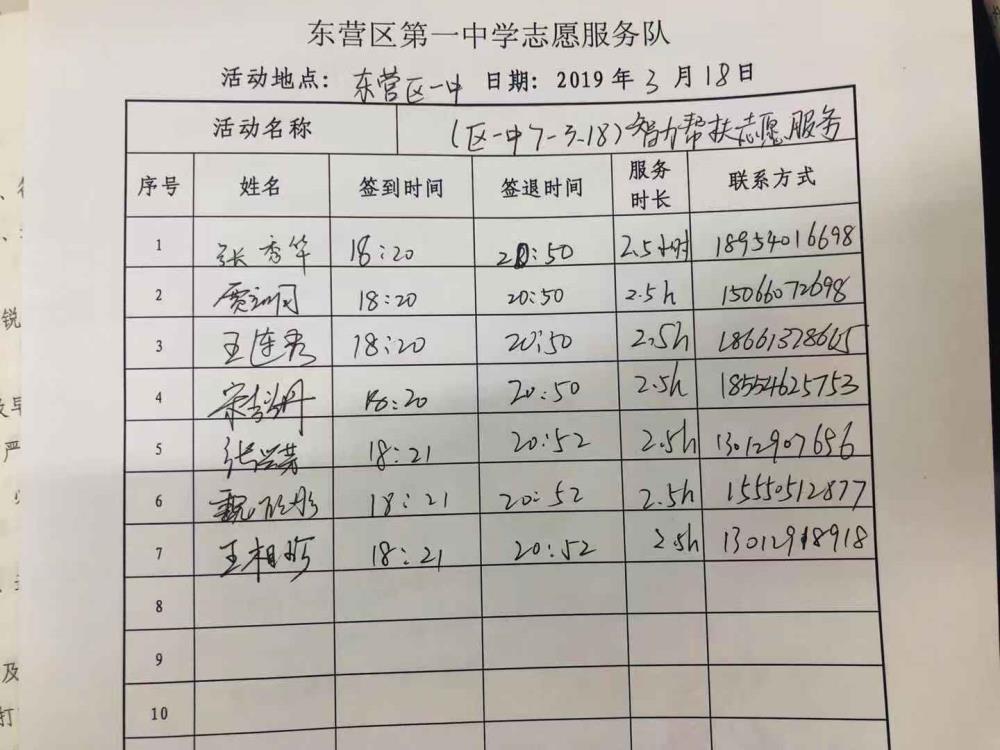 东营区第一中学志愿服务队
活动地点: 东营区一中 日期: 2019年3月18日
活动名称 (区一中7-3.18)智力帮扶志愿服务
序号 姓名 签到时间 签退时间 服务时长 联系方式
1 张秀华 18:20 20:50 2.5小时 18954016698
2 贾 18:20 20:50 2.5h 15066072698
3 王连秀 18:20 20:50 2.5h
4 18:20 20:50 2.5h 18554625753
5 张 18:21 20:52 2.5h
6 魏欣彤 18:21 20:52 2.5h 15550512877
7 王相 18:21 20:52 2.5h 13012918918
8
9
10
锐
严
及
打